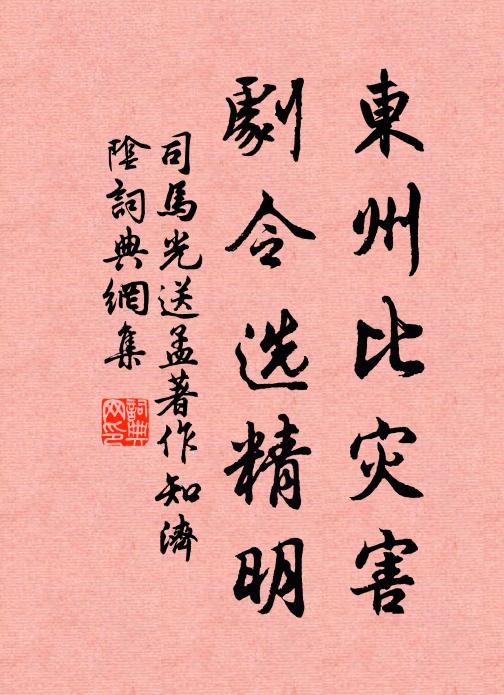 東州比灾害
劇令选精明
司馬光送孟著作知濟
陰詞典網集
詞典
网印